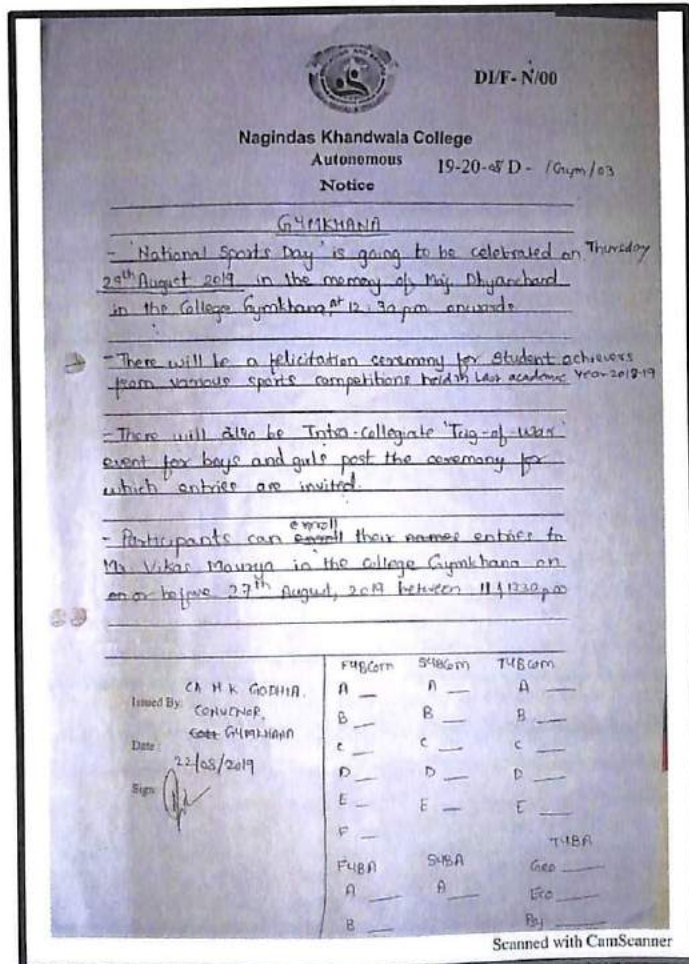 DI/F- N/00
Nagindas Khandwala College
Autonomous 19-20-08 D - /Gym/03
Notice
GYMKHANA
- 'National Sports Day' is going to be celebrated on Thursday
29th August 2019 in the memory of Maj. Dhyanchand
in the College Gymkhana, at 12:30pm onwards
- There will be a felicitation ceremony for student achievers
from various sports competitions held in Last academic Year-2018-19
- There will also be Intra-Collegiate 'Tug-of-War'
event for boys and girls post the ceremony for
which entries are invited.
enroll
- Participants can enroll their names entries to
Mr. Vikas Maurya in the college Gymkhana on
on or before 27th August, 2019 between 11 & 1230pm
CA M K GODHIA.
Issued By: CONVENOR,
GYMKHANA
Date: 22/08/2019
Sign:
FYBCom SYBCom TYBCom
A A A
B B B
C C C
D D D
E E E
F
TYBA
FYBA SYBA Geo
A A Eco
B Psy
Scanned with CamScanner